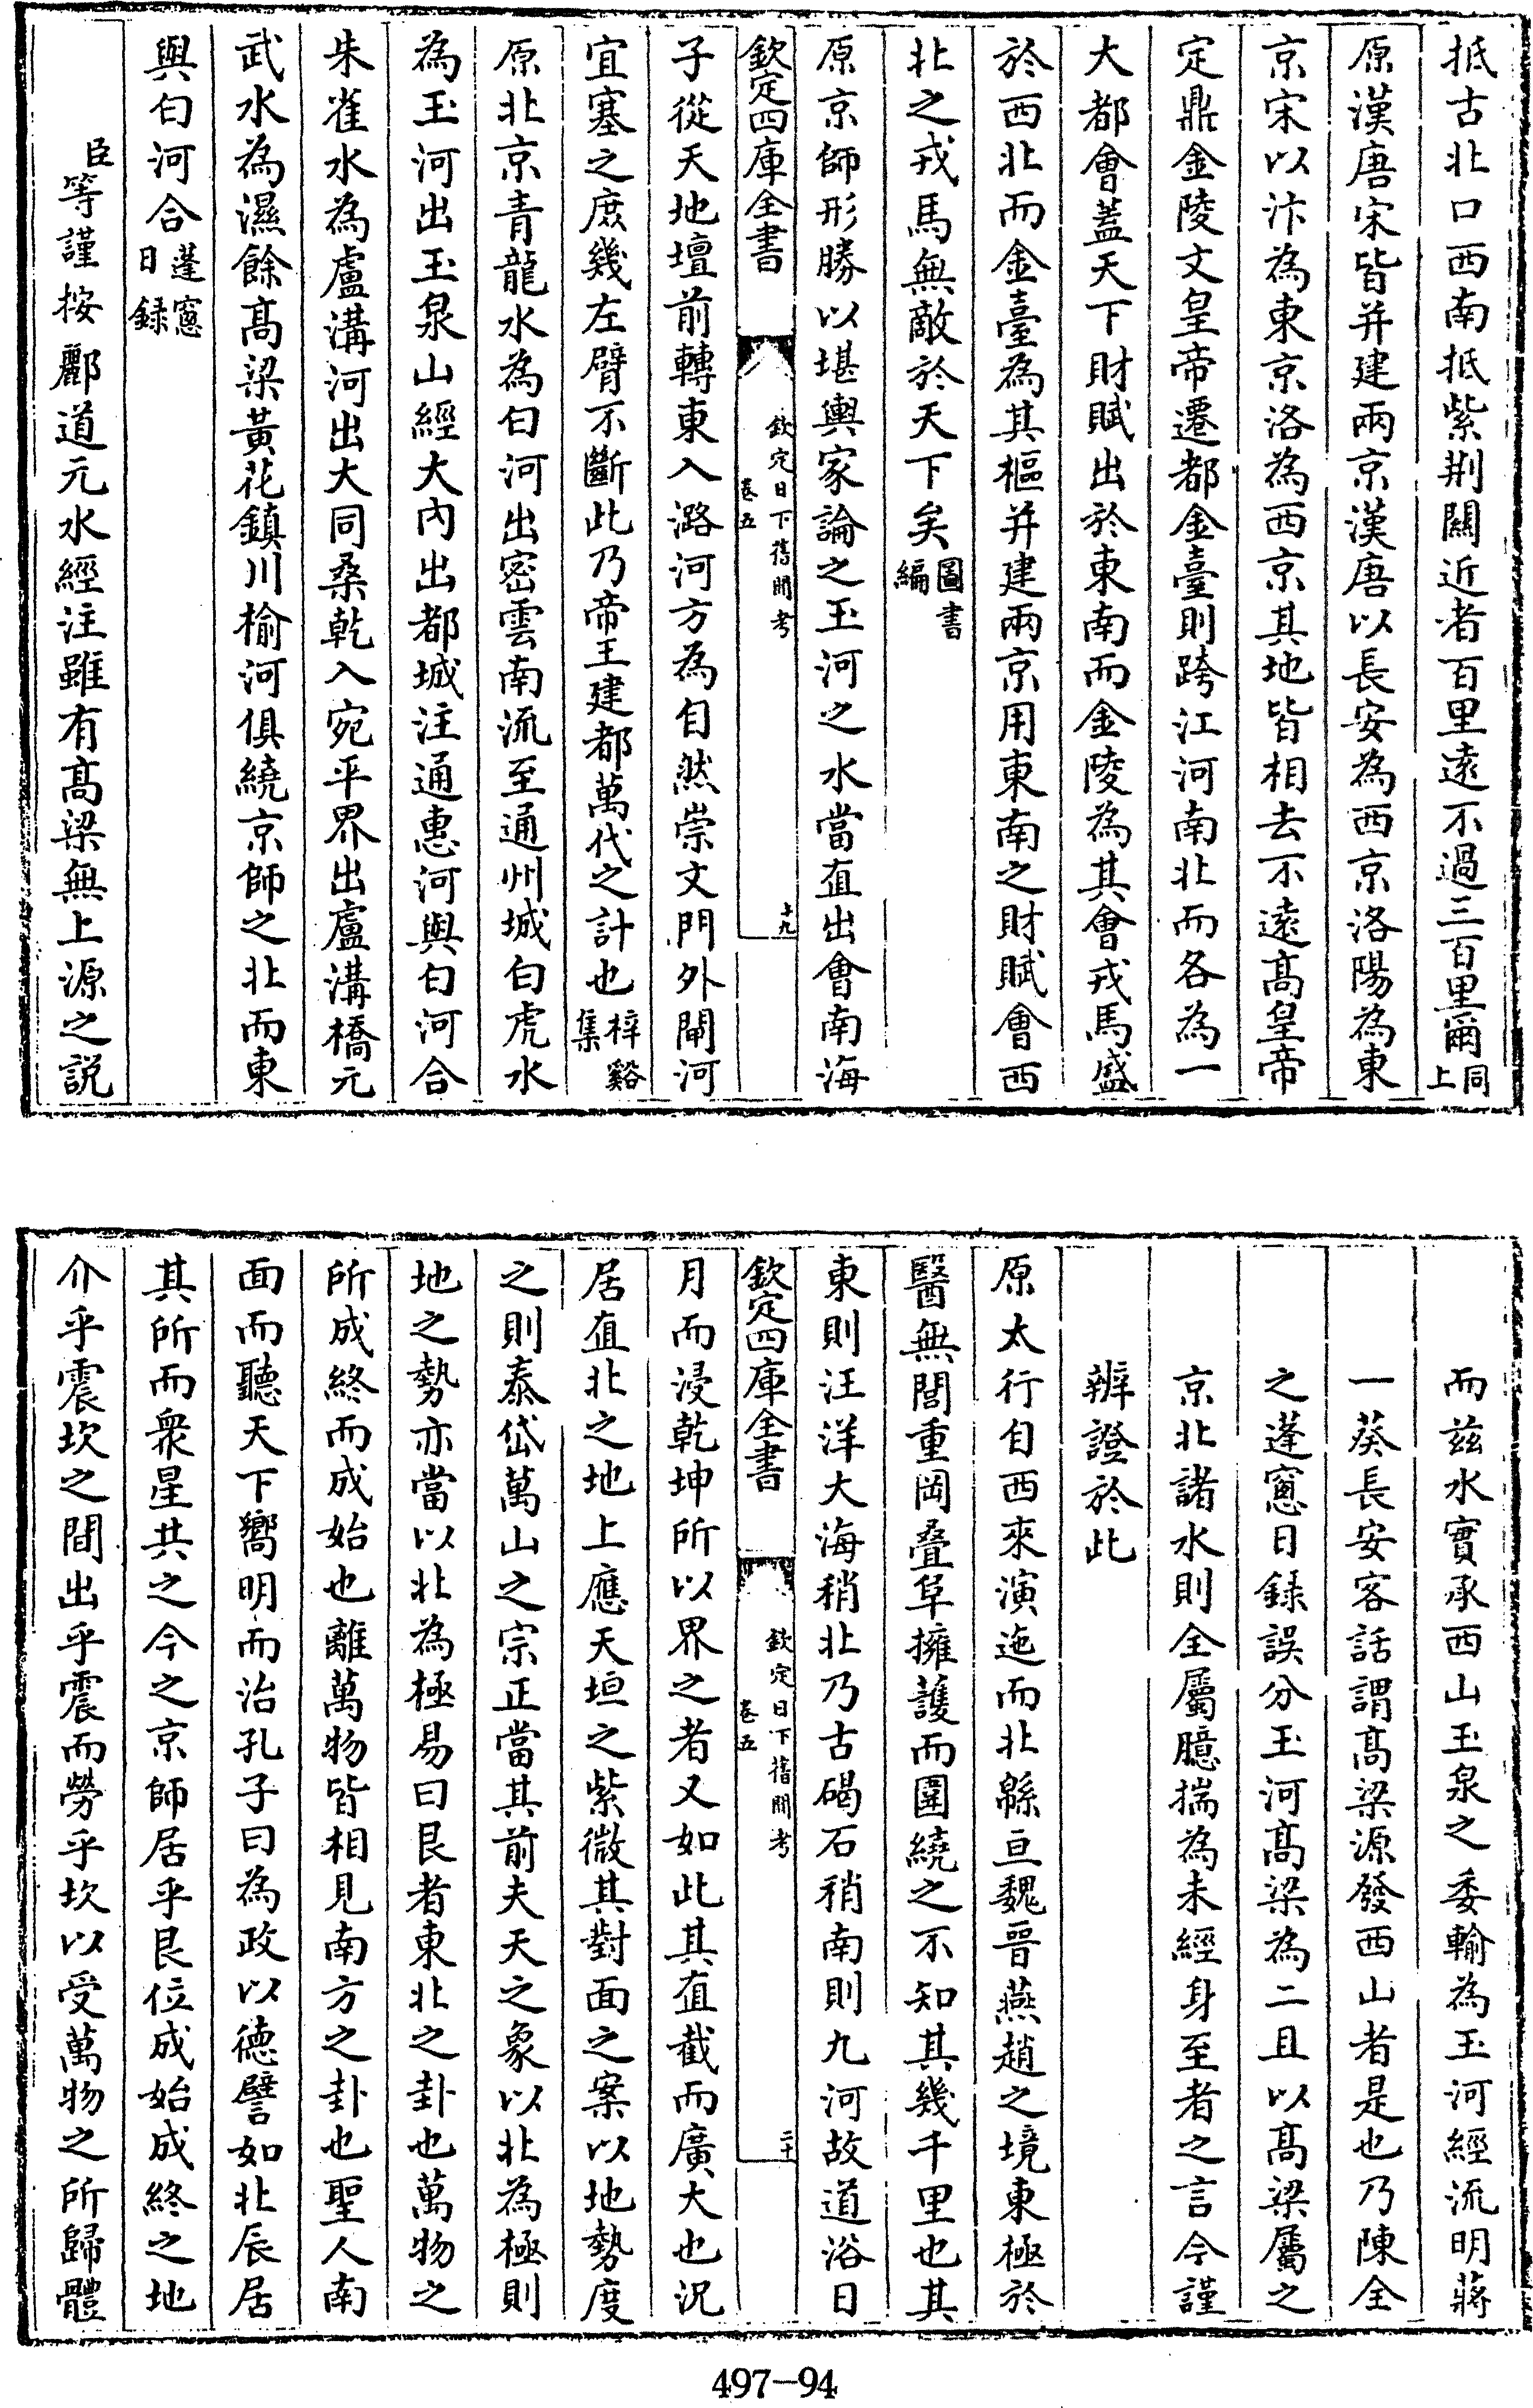 抵古北口西南抵紫荆關近者百里遠不過三百里爾同上
原漢唐宋皆并建兩京漢唐以長安為西京洛陽為東
京宋以汴為東京洛為西京其地皆相去不遠髙皇帝
定鼎金陵文皇帝遷都金臺則跨江河南北而各為一
大都會葢天下財賦出於東南而金陵為其會戎馬盛
於西北而金臺為其樞并建兩京用東南之財賦會西
北之戎馬無敵於天下矣圖書編
原京師形勝以堪輿家論之玉河之水當直出會南海
欽定四庫全書
欽定日下舊聞考
卷五
十九
子從天地壇前轉東入潞河方為自然崇文門外閘河
宜塞之庶幾左臂不斷此乃帝王建都萬代之計也梓谿集
原北京青龍水為白河出密雲南流至通州城白虎水
為玉河出玉泉山經大内出都城注通惠河與白河合
朱雀水為盧溝河出大同桑乾入宛平界出盧溝橋元
武水為濕餘髙梁黃花鎮川榆河俱繞京師之北而東
與白河合蓬窻日録
臣等謹按酈道元水經注雖有髙梁無上源之説
而兹水實承西山玉泉之委輸為玉河經流明蔣
一葵長安客話謂髙梁源發西山者是也乃陳全
之蓬窻日録誤分玉河髙梁為二且以髙梁屬之
京北諸水則全屬臆揣為未經身至者之言今謹
辨證於此
原太行自西來演迤而北緜亘魏晉燕趙之境東極於
醫無閭重岡疊阜擁護而圍繞之不知其幾千里也其
東則汪洋大海稍北乃古碣石稍南則九河故道浴日
欽定四庫全書
欽定日下舊聞考
卷五
二十
月而浸乾坤所以界之者又如此其直截而廣大也況
居直北之地上應天垣之紫微其對面之案以地勢度
之則泰岱萬山之宗正當其前夫天之象以北為極則
地之勢亦當以北為極易曰艮者東北之卦也萬物之
所成終而成始也離萬物皆相見南方之卦也聖人南
面而聽天下嚮明而治孔子曰為政以德譬如北辰居
其所而衆星共之今之京師居乎艮位成始成終之地
介乎震坎之間出乎震而勞乎坎以受萬物之所歸體
497-94